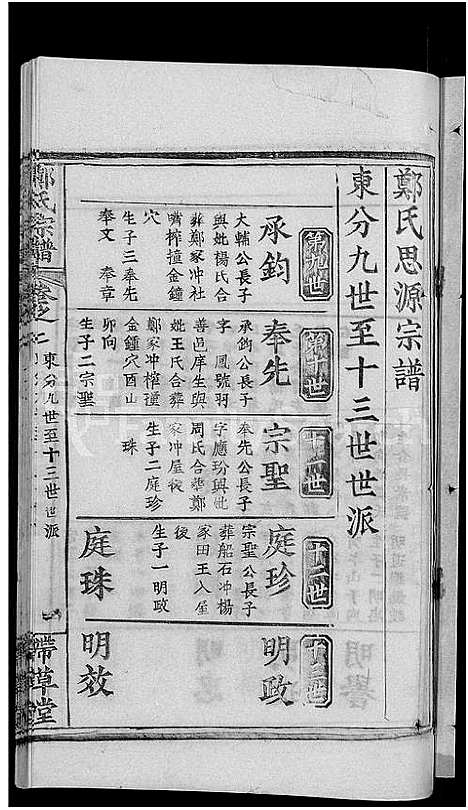 鄭氏思源宗譜
東分九世至十三世世派
第九世
承鈞
大輔公長子
與妣楊氏合
葬鄭家冲社
嘴榨撞金鐘
穴
生子三奉先
奉文 奉章
第十世
奉先
承鈞公長子
字 鳳號羽
善邑庠生與
妣王氏合葬
鄭家冲榨撞
金鐘穴酉山
卯向
生子二宗聖
十一世
宗聖
奉先公長子
字應玢與妣
周氏合葬鄭
家冲屋後
生子二庭珍
珠
十二世
庭珍
宗聖公長子
葬船石冲楊
家田王入屋
後
生子一明政
庭珠
十三世
明政
明效
鄭氏宗譜
卷之二
東分九世至十三世世派
帶草堂